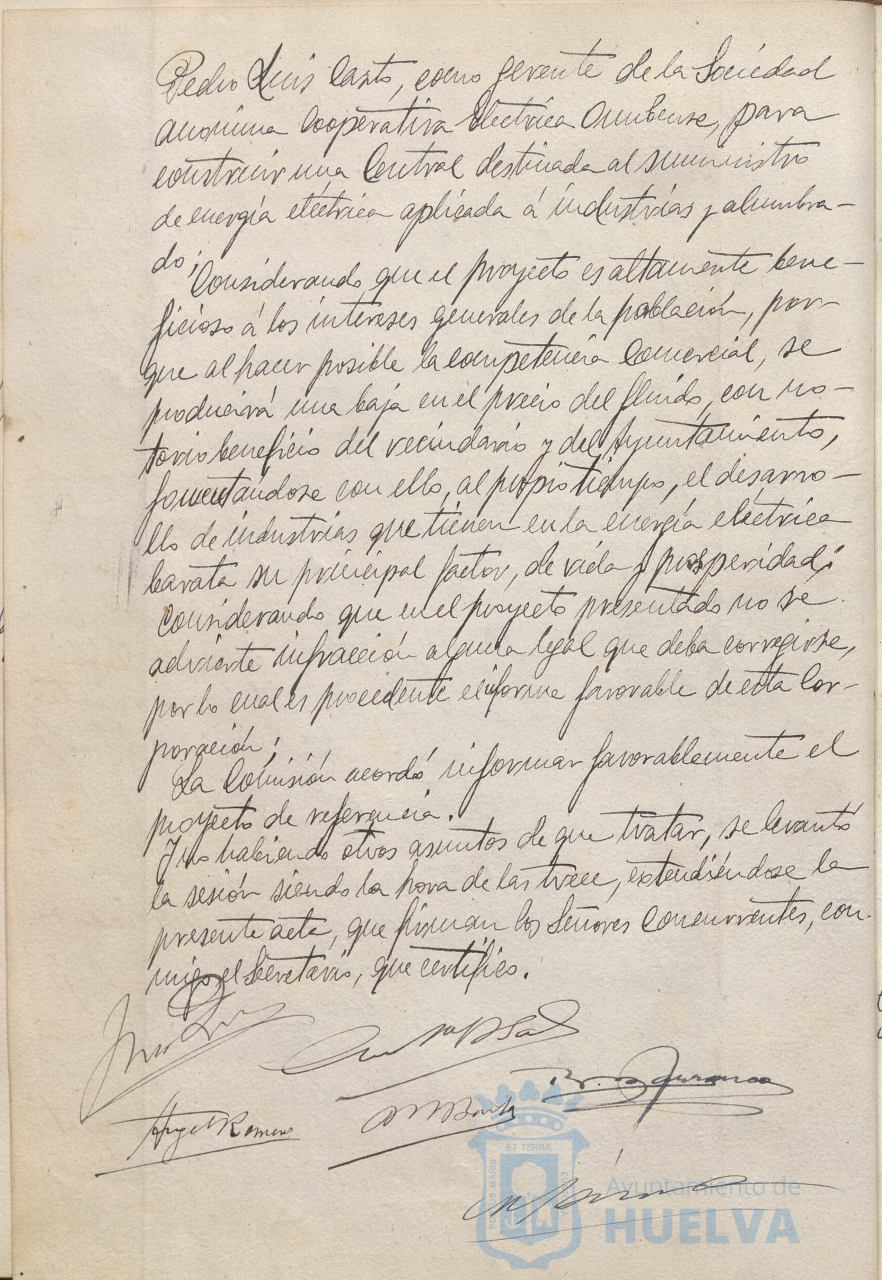 Pedro Luis Casto, como gerente de la Sociedad
anonima Cooperativa Electrica Onubense, para
construir una Central destinada al suministro
de energía eléctrica aplicada á industrias y alumbra-
do;
Considerando que el proyecto es altamente bene-
ficioso á los intereses generales de la población, por-
que al hacer posible la competencia comercial, se
producirá una baja en el precio del fluido, con no-
torio beneficio del vecindario y del Ayuntamiento,
fomentándose con ello, al propio tiempo, el désarro-
llo de industrias que tienen en la energía eléctrica
barata su principal factor, de vida y prosperidad;
Considerando que en el proyecto presentado no se
advierte infracción alguna legal que deba corregirse,
por lo cual es procedente el informe favorable de esta Cor-
poración;
La Comisión acordó informar favorablemente el
proyecto de referencia.
Y no habiendo otros asuntos de que tratar, se levantó
la sesión siendo la hora de las trece, extendiéndose la
presente acta, que firman los Señores concurrentes, con-
migo, el Secretario, que certifico.
Angel Romero
ET TERRÆ
PORTUS MARIS
CUSTODIA
Ayuntamiento de
HUELVA